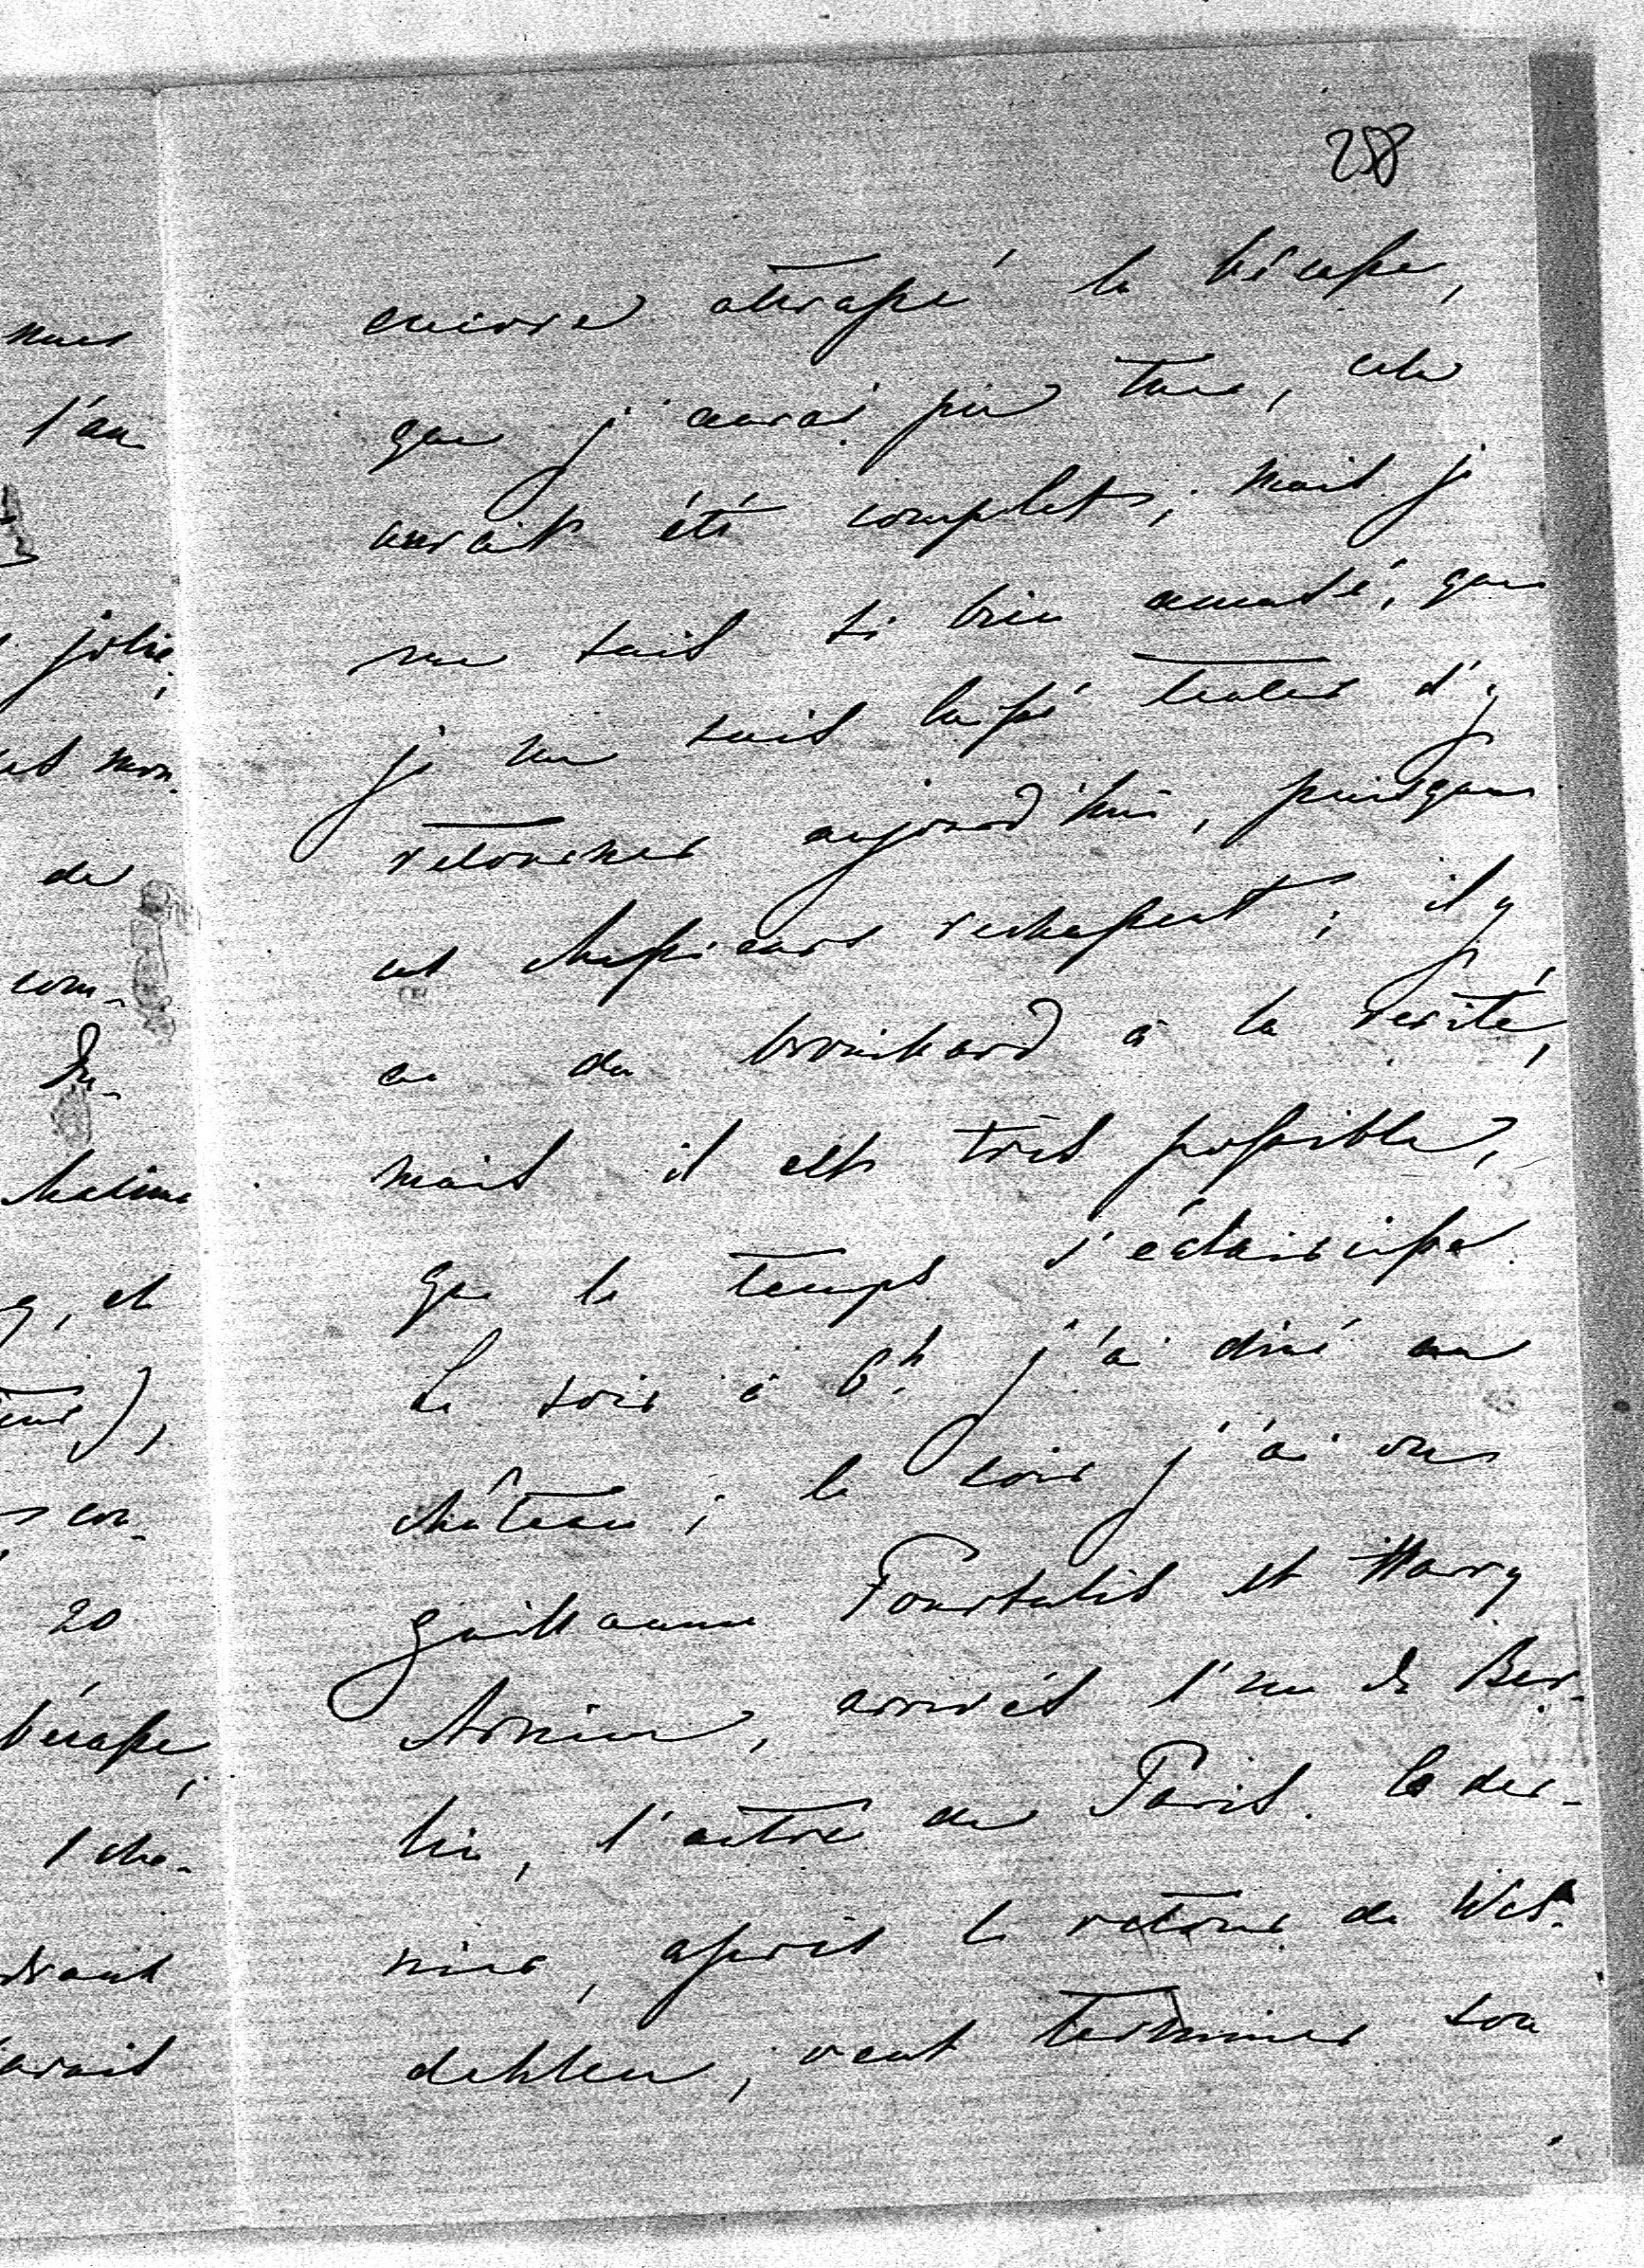 258
encore attrapé la bécasse,
que j'aurai pu tuer, cela
aurait été complet; mais je
me suis si bien amusé, que
je me suis laissé tenter d'y
retourner aujourd'hui, puisque
les chasseurs rechassent; il y
a du brouillard à la vérité,
mais il est très possible,
que le temps s'éclaircisse.
Le soir à 6h j'ai diné au
château; le soir j'ai vu
Guillaume Pourtalès et Harry
Arnim, arrivés l'un de Ber-
lin, l'autre de Paris. Ce der-
nier, après le retour de Wes-
dehlen, veut terminer son
nues
l'au
jolie,
et mon
de
com-
Du-
, et
),
con-
20
bécasse,
1 che-
avait